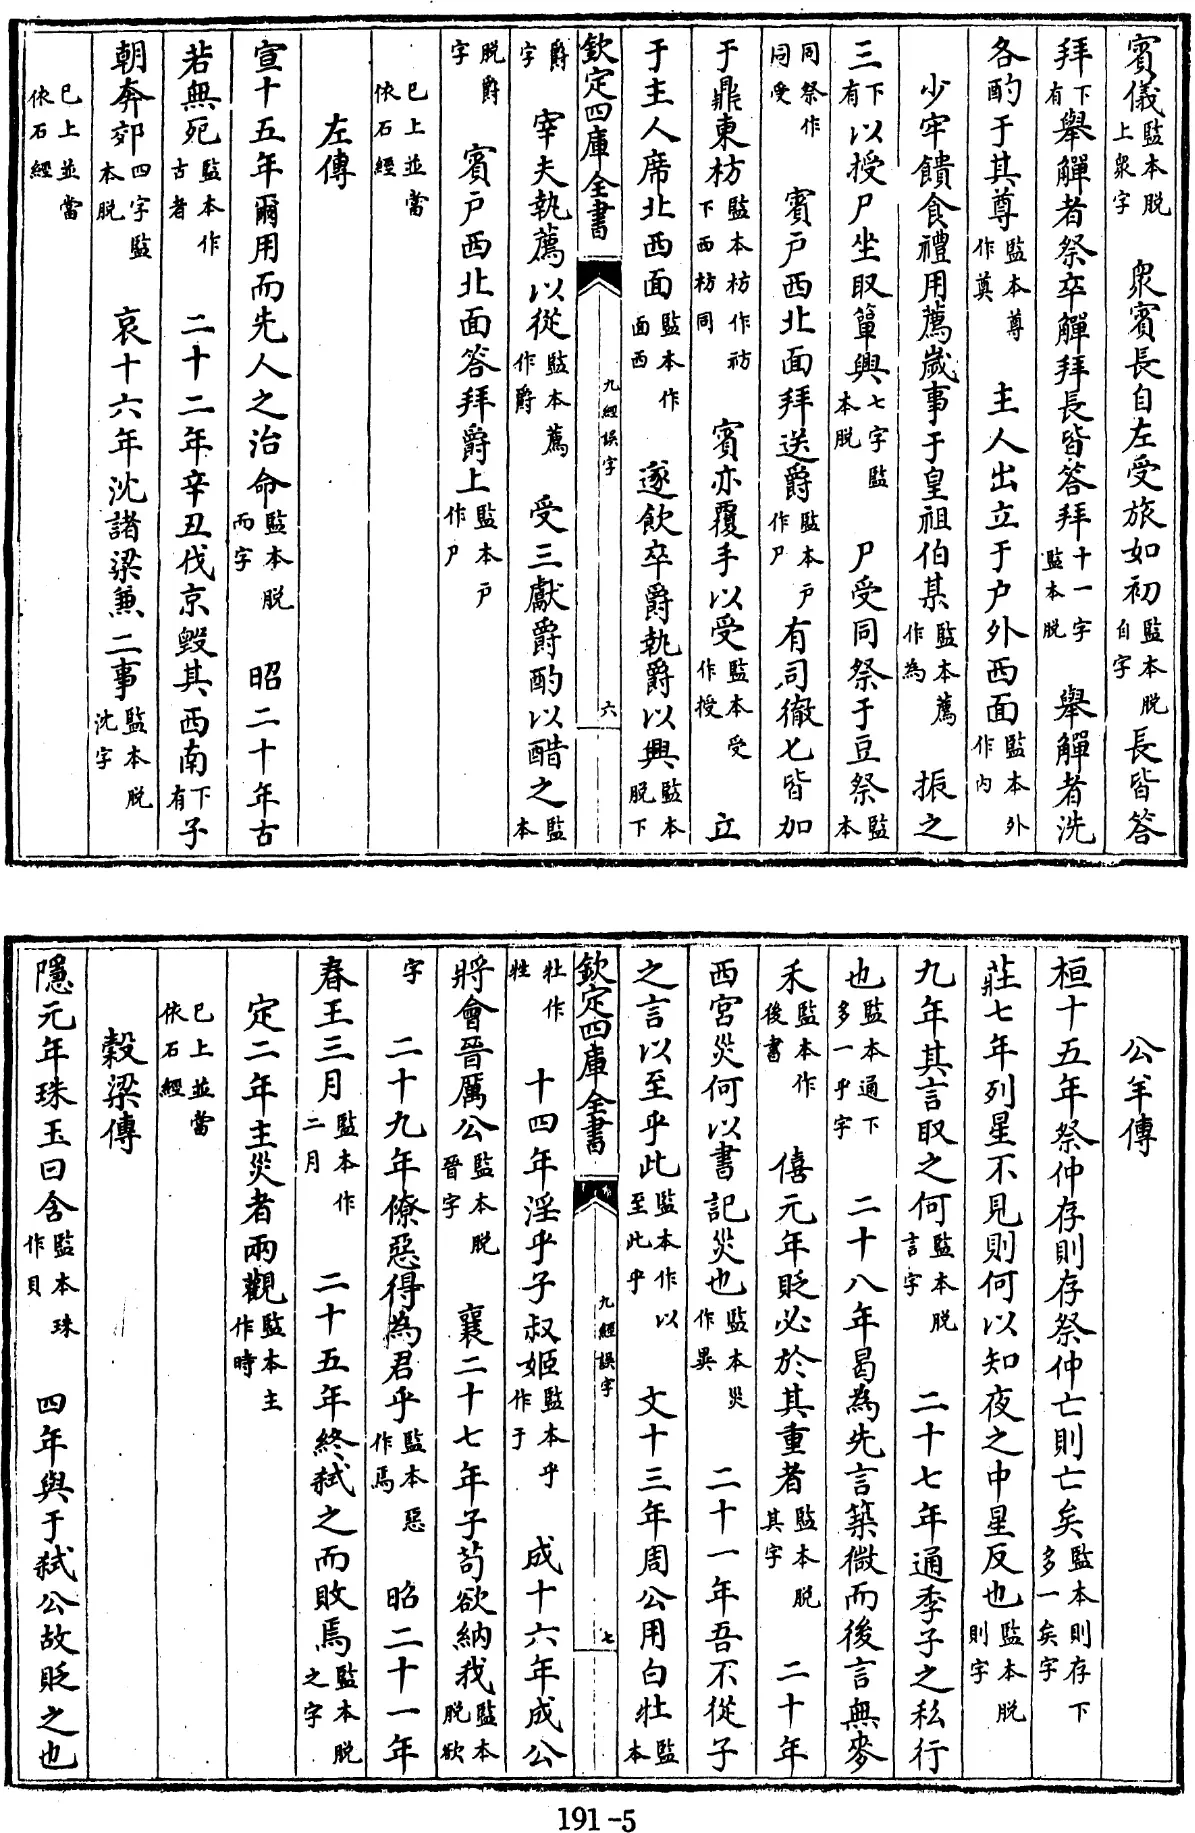 賓儀監本脫上衆字　衆賓長自左受旅如初監本脫自字長皆答
拜下有舉觶者祭卒觶拜長皆答拜十一字監本脫　舉觶者洗
各酌于其尊監本尊作奠　主人出立于戶外西面監本外作內
少牢饋食禮用薦歲事于皇祖伯某監本薦作為　振之
三下有以授尸坐取簞興七字監本脫　尸受同祭于豆祭監本
同祭作同受　賓戶西北面拜送爵監本戶作尸有司徹匕皆加
于鼎東枋監本枋作祊下西枋同　賓亦覆手以受監本受作授　立
于主人席北西面監本作面西　遂飲卒爵執爵以興監本脫下
欽定四庫全書　九經誤字　六
爵字　宰夫執薦以從監本薦作爵　受三獻爵酌以醋之監本
脫爵字　賓戶西北面答拜爵上監本戶作尸
已上並當依石經
左傳
宣十五年爾用而先人之治命監本脫而字　昭二十年古
若無死監本作古者　二十二年辛丑伐京毀其西南下有子
朝奔郊四字監本脫　哀十六年沈諸梁兼二事監本脫沈字
已上並當依石經
公羊傳
桓十五年祭仲存則存祭仲亡則亡矣監本則存下多一矣字
莊七年列星不見則何以知夜之中星反也監本脫則字
九年其言取之何監本脫言字　二十七年通季子之私行
也監本通下多一乎字　二十八年曷為先言築微而後言無麥
禾監本作後書　僖元年貶必於其重者監本脫其字　二十年
西宮災何以書記災也監本災作異　二十一年吾不從子
之言以至乎此監本作以至此乎　文十三年周公用白牡監本
欽定四庫全書　九經誤字　七
牡作牲　十四年淫乎子叔姬監本乎作于　成十六年成公
將會晉厲公監本脫晉字　襄二十七年子苟欲納我監本脫欲
字　二十九年僚惡得為君乎監本惡作焉　昭二十一年
春王三月監本作二月　二十五年終弒之而敗焉監本脫之字
定二年主災者兩觀監本主作時
已上並當依石經
穀梁傳
隱元年珠玉曰含監本珠作貝　四年與于弒公故貶之也
191-5